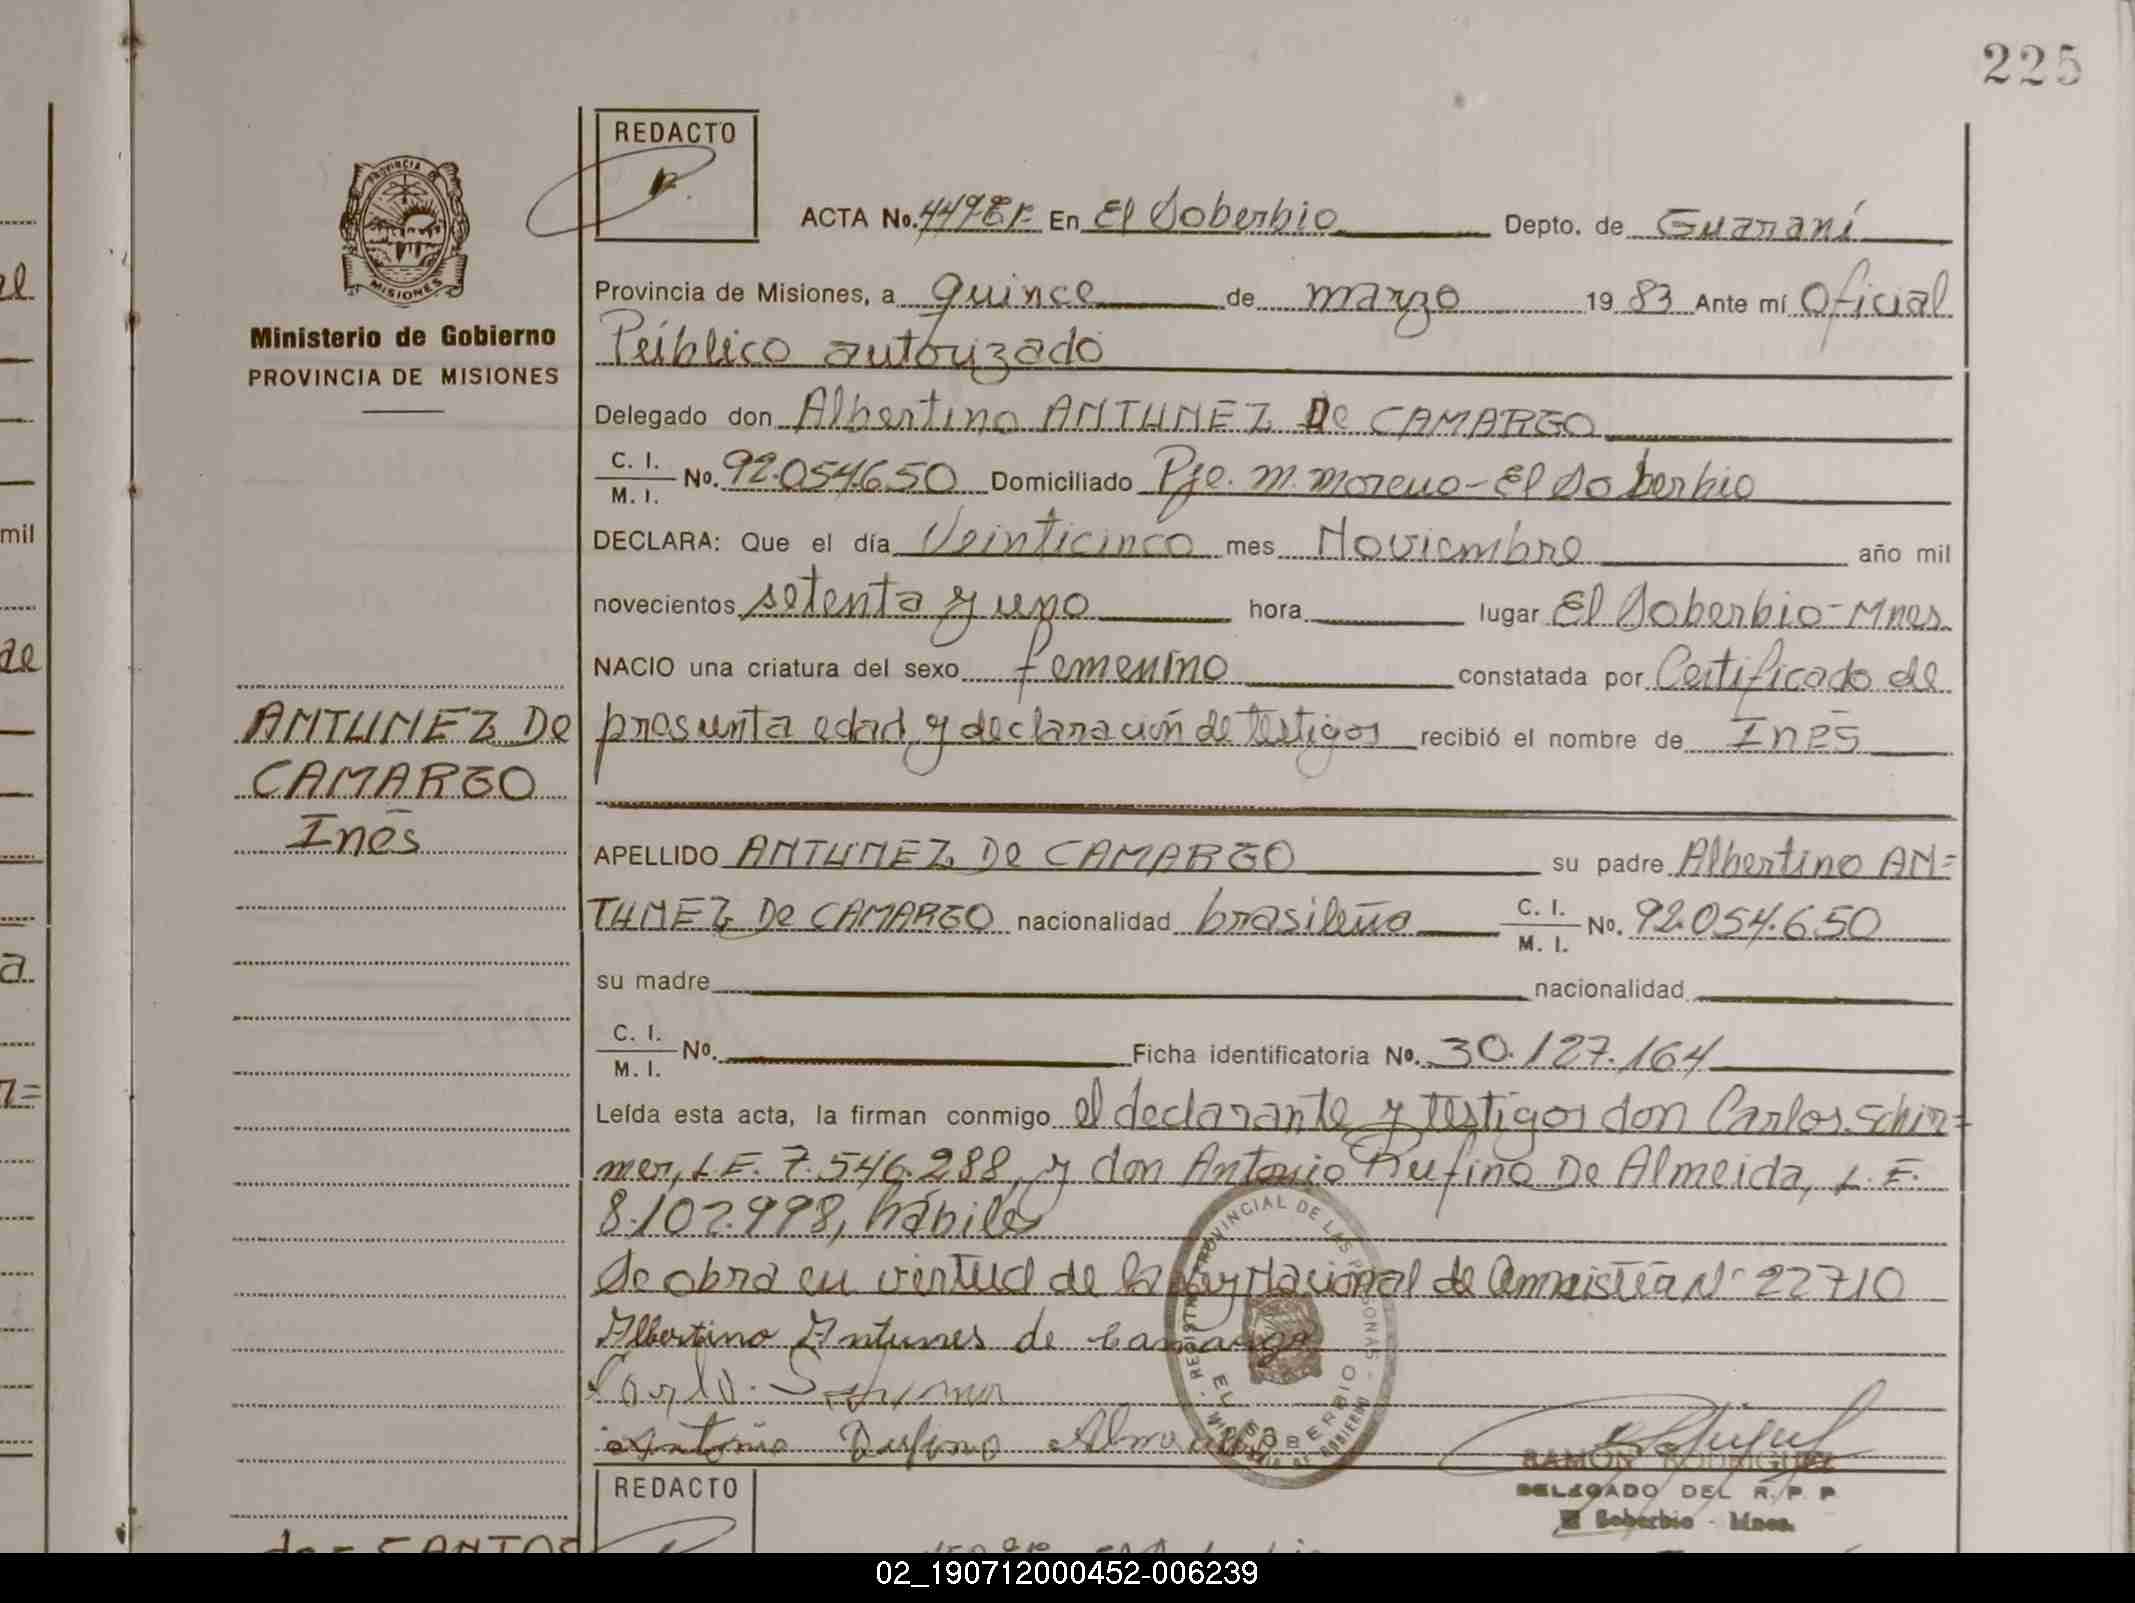 225
REDACTO
ACTA No. 449 En El Soberbio Depto. de Guaraní
Provincia de Misiones, a quince de marzo 1983 Ante mí Oficial
Público autorizado
Delegado don Albertino ANTUNEZ De CAMARGO
C. I.
M. I. No. 92.054.650 Domiciliado Pje. M. Moreno - El Soberbio
DECLARA: Que el día Veinticinco mes Noviembre año mil
novecientos setenta y uno hora lugar El Soberbio - Mnes.
NACIO una criatura del sexo femenino constatada por Certificado de
presunta edad y declaración de testigos recibió el nombre de Inés
APELLIDO ANTUNEZ De CAMARGO su padre Albertino AN=
TUNEZ De CAMARGO nacionalidad brasileña C. I.
M. I. No. 92.054.650
su madre nacionalidad
C. I.
M. I. No. Ficha identificatoria No. 30.127.164
Leída esta acta, la firman conmigo el declarante y testigos don Carlos Schir=
mer, L.E. 7.546.288, y don Antonio Rufino De Almeida, L.E.
8.102.998, hábiles
Se obra en virtud de la Ley Nacional de Amnistía N° 22710
Albertino Antunes de Camargo
Antonio Rufino Almeida
REGISTRO PROVINCIAL DE LAS PERSONAS
EL SOBERBIO
RAMON RODRIGUEZ
DELEGADO DEL R. P. P
El Soberbio - Mnes.
PROVINCIA DE
MISIONES
Ministerio de Gobierno
PROVINCIA DE MISIONES
ANTUNEZ De
CAMARGO
Inés
REDACTO
dos SANTOS
el
mil
de
a
02_190712000452-006239